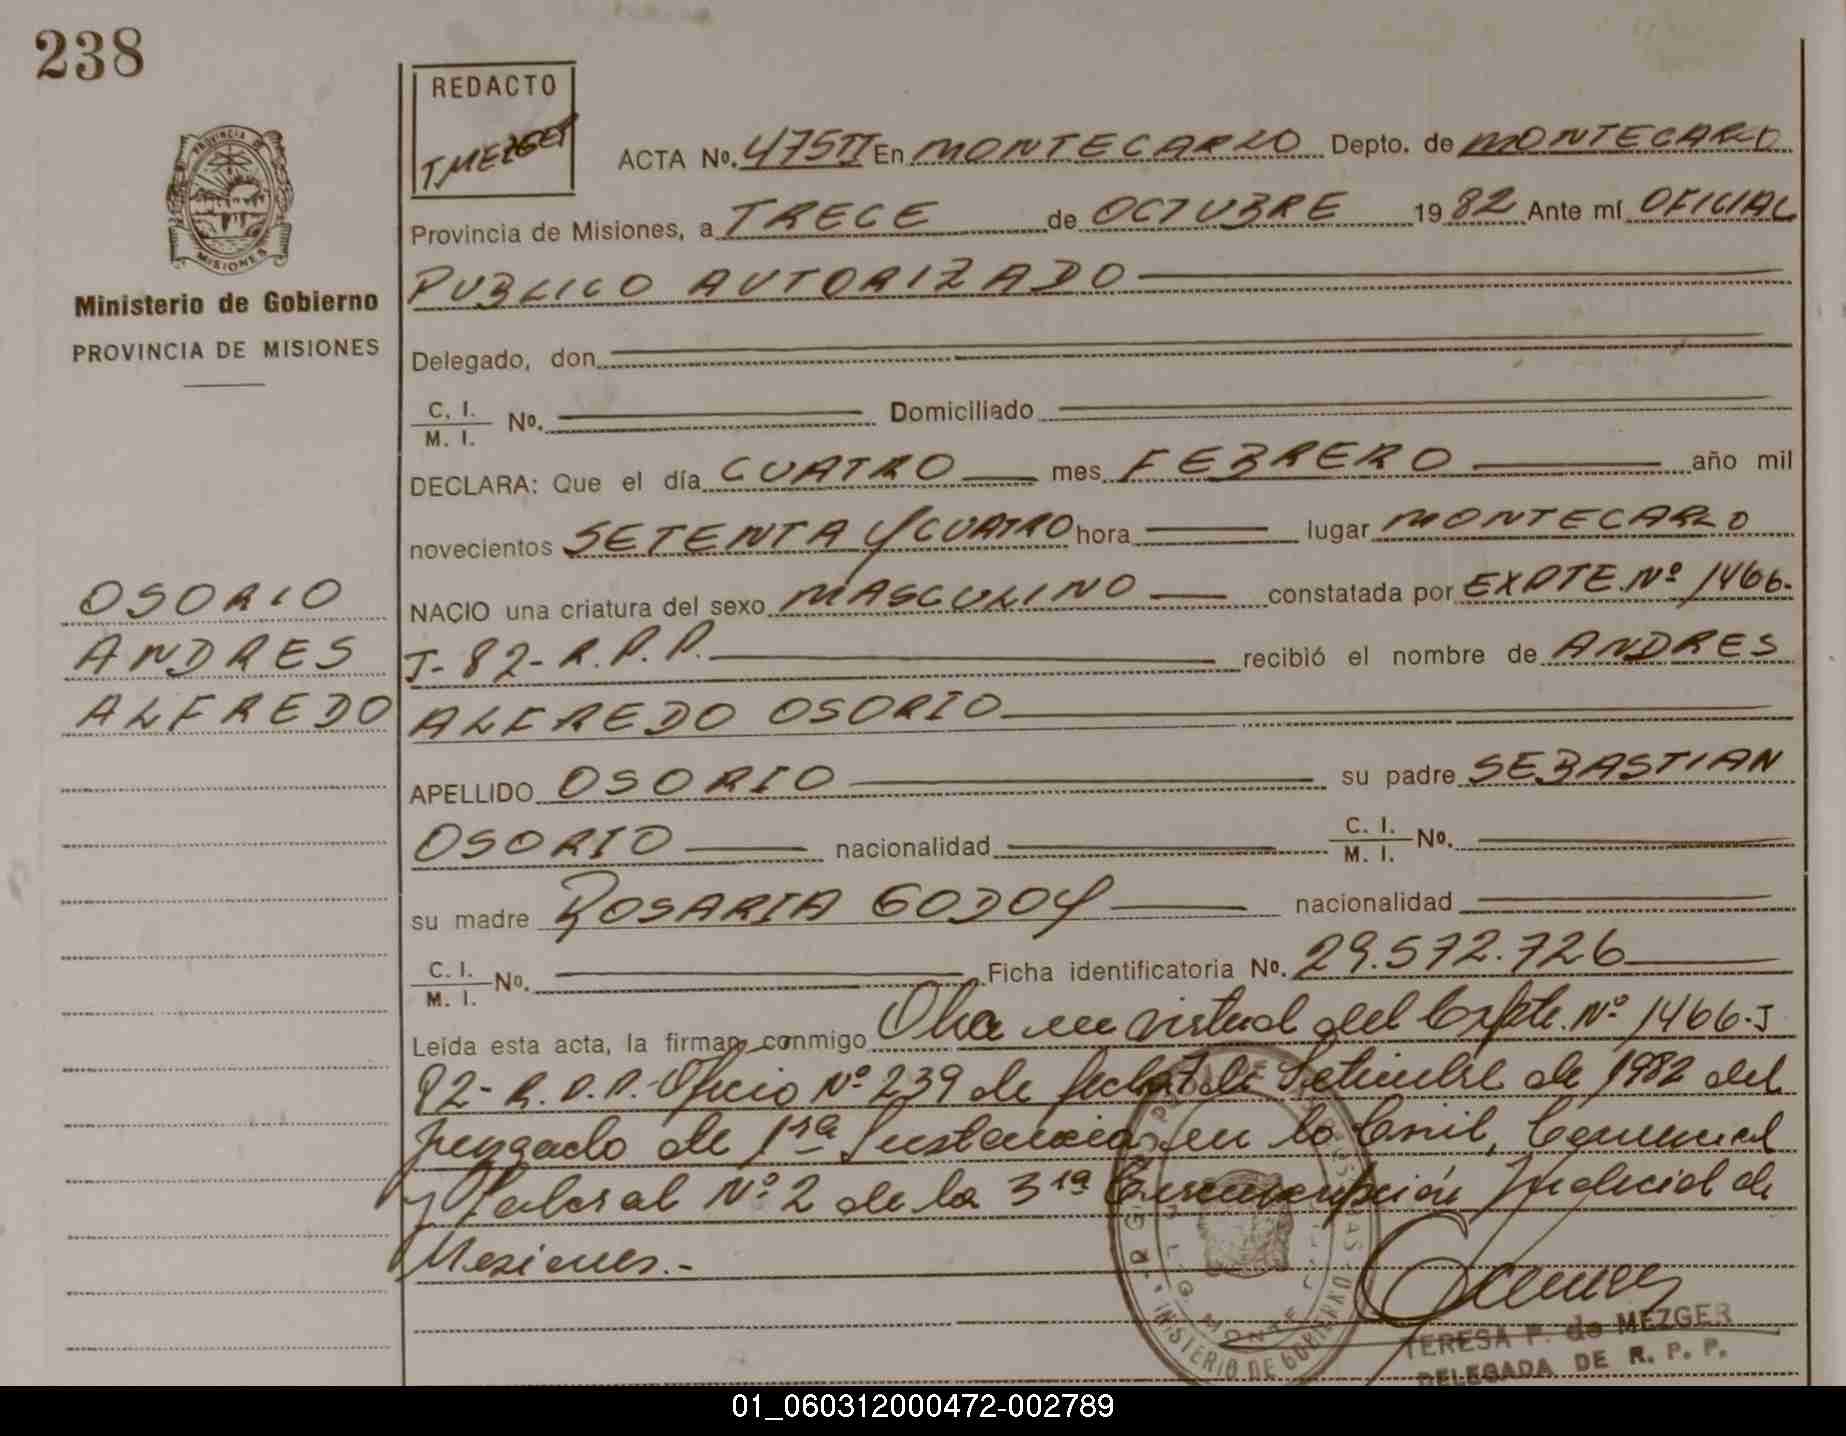 238
REDACTO
T. MEZGER
PROVINCIA DE
MISIONES
Ministerio de Gobierno
PROVINCIA DE MISIONES
ACTA No. 475 II En MONTECARLO Depto. de MONTECARLO
Provincia de Misiones, a TRECE de OCTUBRE 1982 Ante mí OFICIAL
PUBLICO AUTORIZADO
Delegado, don
C. I. / M. I. No. Domiciliado
DECLARA: Que el día CUATRO mes FEBRERO año mil
novecientos SETENTA Y CUATRO hora lugar MONTECARLO
NACIO una criatura del sexo MASCULINO constatada por EXPTE. Nº 1466-
J-82-R.P.P. recibió el nombre de ANDRES
ALFREDO OSORIO
OSORIO
ANDRES
ALFREDO
APELLIDO OSORIO su padre SEBASTIAN
OSORIO nacionalidad C. I. / M. I. No.
su madre ROSARIA GODOY nacionalidad
C. I. / M. I. No. Ficha identificatoria No. 29.572.726
Leída esta acta, la firman conmigo en virtud del Expte. Nº 1466-J
82-R.P.P. Oficio Nº 239 de fecha 7 de Setiembre de 1982 del
Juzgado de 1ra Instancia en lo Civil, Comercial
y Laboral Nº 2 de la 3ra Circunscripción Judicial de
Misiones.-
MINISTERIO DE GOBIERNO
TERESA P. de MEZGER
DELEGADA DE R. P. P.
01_060312000472-002789